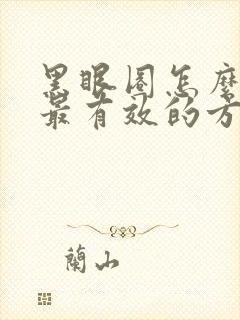 黑眼圈怎麽
最有效的方
蘭山